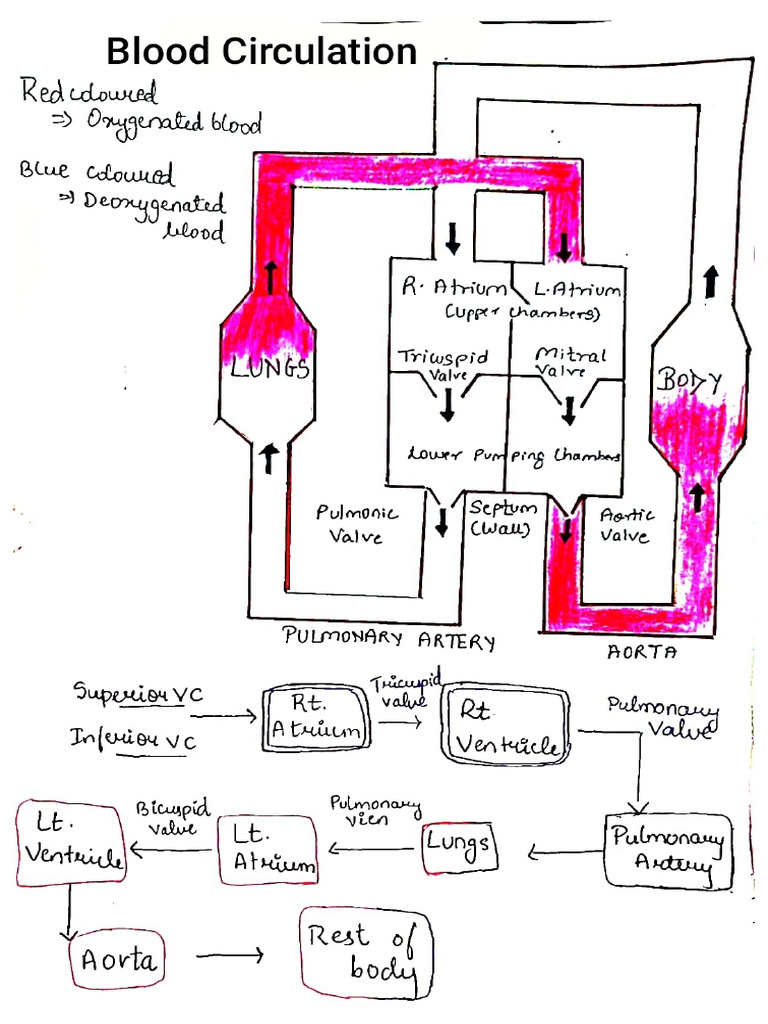 Blood Circulation
Red coloured
=> Oxygenated blood
Blue coloured
=> Deoxygenated
blood
R. Atrium
L. Atrium
(Upper Chambers)
Tricuspid
Valve
Mitral
Valve
LUNGS
BODY
Lower Pumping Chambers
Pulmonic
Valve
Septum
(Wall)
Aortic
Valve
PULMONARY ARTERY
AORTA
Superior VC
Inferior VC
Rt.
Atrium
Tricuspid
valve
Rt.
Ventricle
Pulmonary
Valve
Lt.
Ventricle
Bicuspid
valve
Lt.
Atrium
Pulmonary
vien
Lungs
Pulmonary
Artery
Aorta
Rest of
body